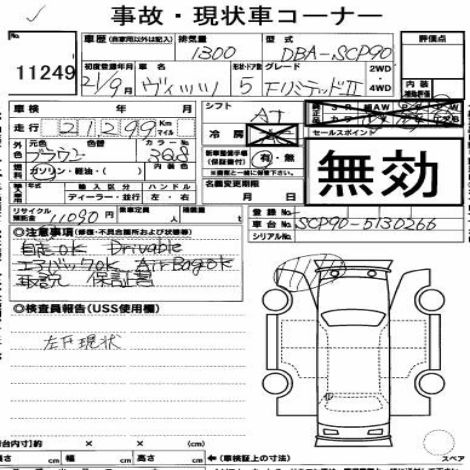 事故・現状車コーナー
No. 車歴 (自家用以外は記入) 排気量 型式 評価点
11249 1300 DBA-SCP90
初度登録年月 車名 形状・ドア数 グレード 2WD 内装
21/9月 ヴィッツ 5 FリミテッドII 4WD 補助評価
車検 年 月 シフト AT
走行 21299 Km マイル 冷房 セールスポイント
外色 元色 色替 カラーNo. 新車整備手帳 (保証書付) 有・無 無効
ブラウン 3Q8 ※書類と一緒に保管下さい
燃料 ガソリン・軽油・( ) 名義変更期限
輸入区分 ハンドル 月 日
車輸入 ディーラー・並行 左・右 登録No.
リサイクル預託金 11090円 乗車定員 人 積載量 t 車台No. SCP90-5130266
シリアルNo.
◎注意事項 (修復・不具合箇所および状態等)
自走OK Drivable
エアバックOK Air Bag ok
取説 保証書
◎検査員報告(USS使用欄)
左下現状
荷台内寸) × ×
長さ cm 幅 cm 高さ cm ←(車検証上の寸法) スペア